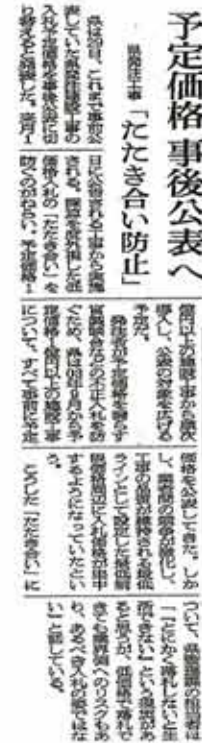 予定価格 事後公表へ
県発注工事
「たたき合い防止」
県は29日、これまで事前公
表していた県発注建設工事の
入札予定価格を事後公表に切
り替えると発表した。来月1
日に公告される工事から実施
される。採算を度外視した低
価格入札の「たたき合い」を
防ぐのがねらい。予定価格1
億円以上の建設工事から順次
導入し、公表の対象を広げる
予定だ。
発注者が予定価格を漏らす
官製談合などの不正入札を防
ぐため、県は
年
月から予
定価格
億円以上の建設工事
について、すべて事前に予定
価格を公表してきた。しか
し、業者間の競争が激化し、
工事の品質が維持される最低
ラインとして設定した最低制
限価格周辺に入札価格が集中
するようになっていたとい
う。
こうした「たたき合い」に
ついて、県管理課の担当者は
「『とにかく落札しないと生
活できない』という現状があ
ると思うが、低価格で落札で
きても業界側へのリスクもあ
り、あるべき入札の姿ではな
い」と話している。